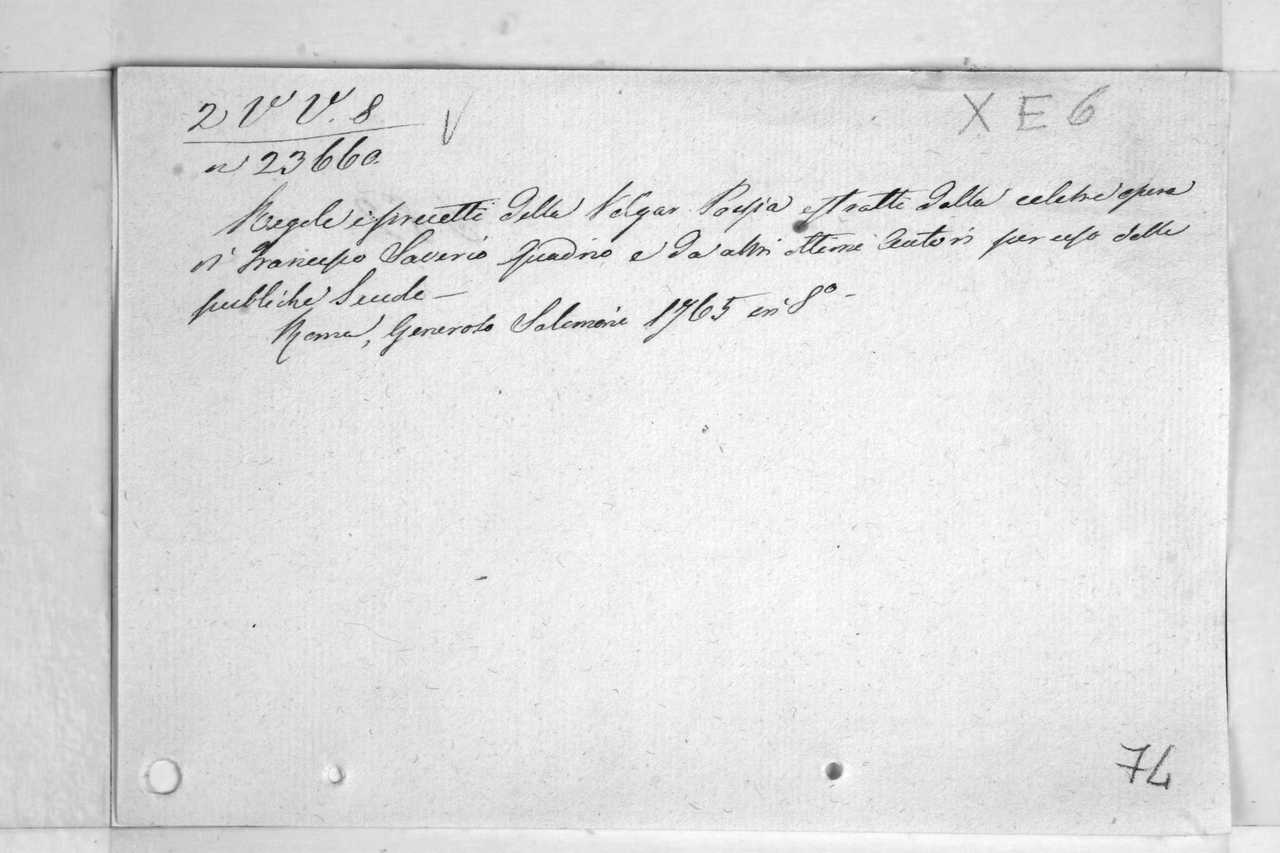 2 V V. 8 V X E 6
n 23660.
Regole e precetti della Volgar Poesia estratti dalla celebre opera
di Francesco Saverio Quadrio e da altri ottimi autori per uso delle
publiche Scuole —
Roma, Generoso Salomoni 1765 in 8º —
74